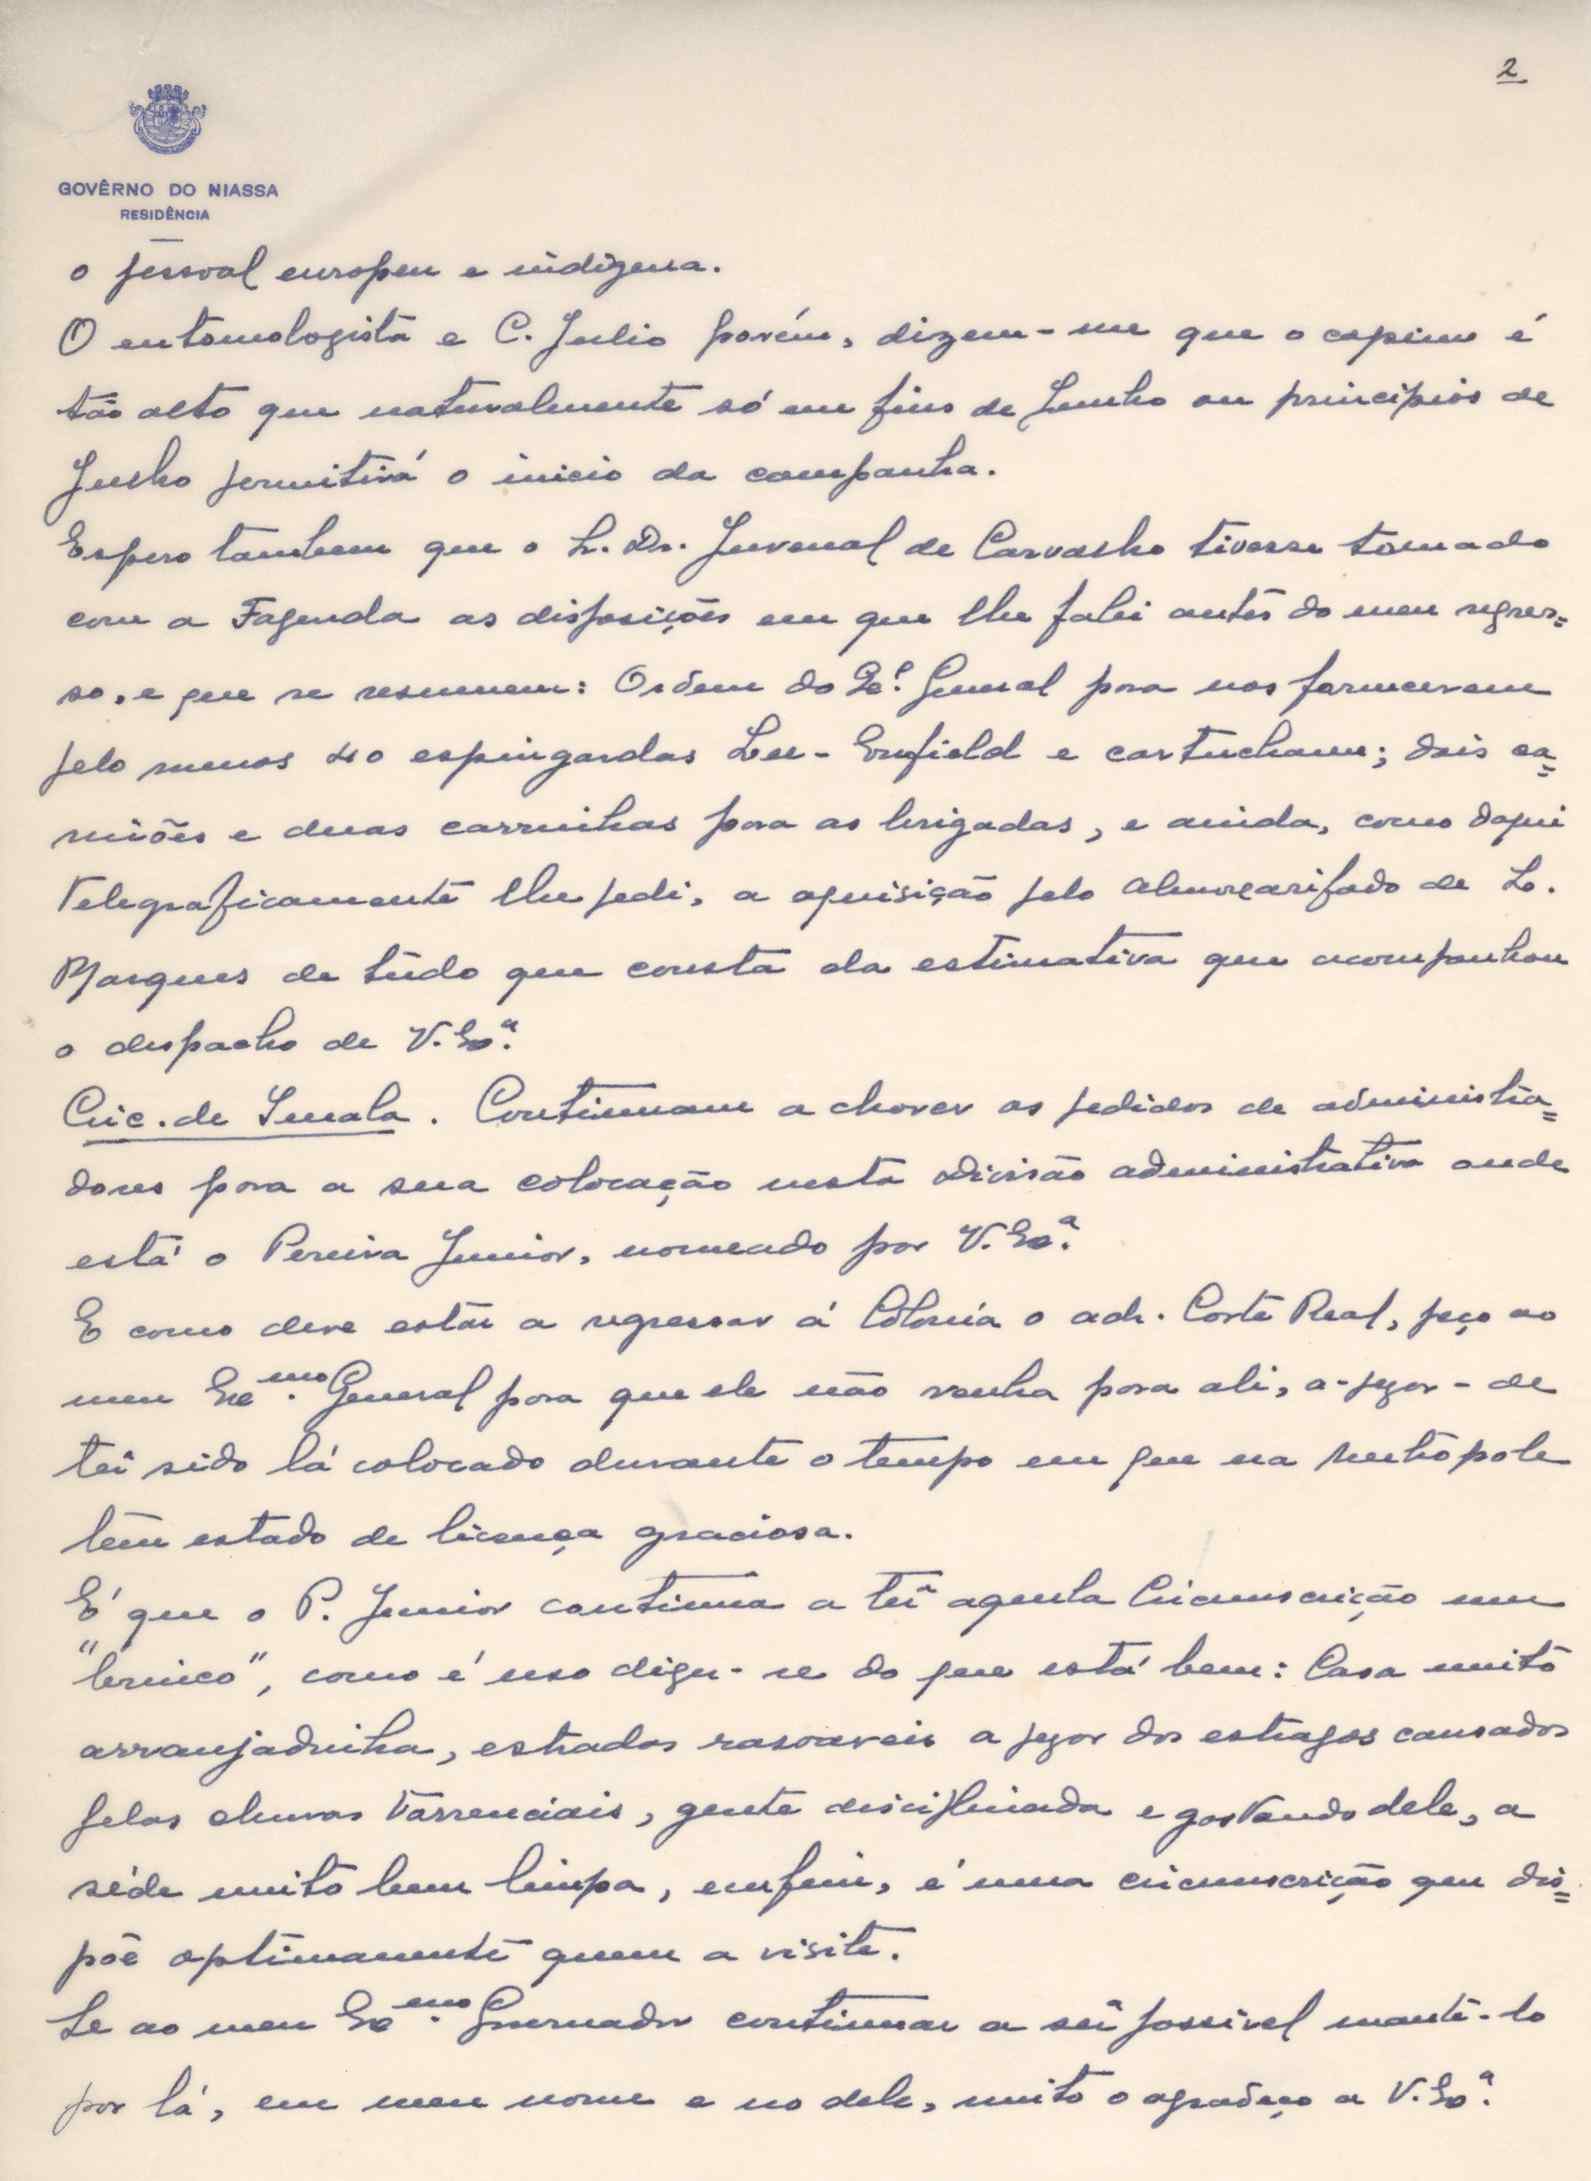 2
GOVÊRNO DO NIASSA
RESIDÊNCIA
o pessoal europeu e indigena.
O entomologista e C. Julio porém, dizem-me que o capim é
tão alto que naturalmente só em fins de Junho ou principios de
Julho permitirá o inicio da campanha.
Espero tambem que o Sr. Dr. Juvenal de Carvalho tivesse tomado
com a Fazenda as disposições em que lhe falei antes do meu regres=
so, e que se resumem: Ordem do Qel. General para nos fornecerem
pelo menos 40 espingardas Lee-Enfield e cartuchame; dois ca=
miões e duas carrinhas para as brigadas, e ainda, como daqui
telegraficamente lhe pedi, a aquisição pelo almoxarifado de L.
Marques de tudo que consta da estimativa que acompanhou
o despacho de V. Exª.
Circ. de Imala. Continuam a chover os pedidos de administra=
dores para a sua colocação nesta divisão administrativa onde
está o Pereira Junior, nomeado por V. Exª.
E como deve estar a regressar á Colonia o adr. Corte Real, peço ao
meu Exmo. General para que ele não venha para ali, a-pezar-de
ter sido lá colocado durante o tempo em que na Metropole
tem estado de licença graciosa.
É que o P. Junior continua a ter aquela Circunscrição um
"brinco", como é uso dizer-se do que está bem: Casa muito
arranjadinha, estradas rasoaveis a pezar dos estragos causados
pelas chuvas torrenciais, gente disciplinada e gostando dele, a
séde muito bem limpa, emfim, é uma circunscrição que dis=
põe optimamente quem a visite.
Se ao meu Exmo. Governador continuar a ser possivel mantê-lo
por lá, em meu nome e no dele, muito o agradeço a V. Exª.